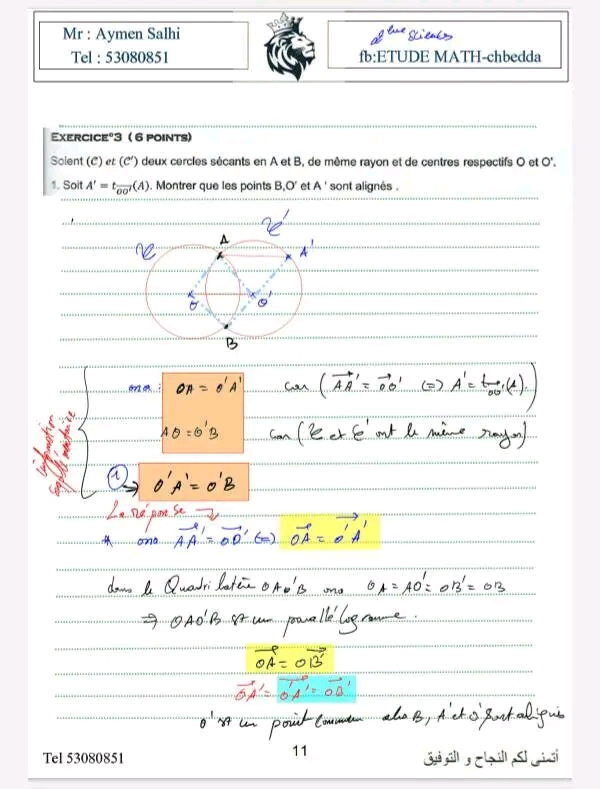 Mr : Aymen Salhi
Tel : 53080851
2ème Sciences
fb:ETUDE MATH-chbedda
EXERCICE°3 (6 POINTS)
Soient (C) et (C') deux cercles sécants en A et B, de même rayon et de centres respectifs O et O'.
1. Soit A' = t_OO'→(A). Montrer que les points B,O' et A' sont alignés .
C C'
A A'
O O'
B
ona : OA = O'A' car (AA'→ = OO'→ (=) A' = t_OO'→(A).)
AO = O'B car (C et C' ont le même rayon)
information supplémentaire
1 → O'A' = O'B
La réponse
* ona AA'→ = OO'→ (=) OA→ = O'A'→
dans le Quadrilatère OAO'B ona OA = AO' = OB' = OB
⇒ OAO'B est un parallélogramme.
OA→ = OB'→
OA'→ = O'A'→ = OB'→
O' est un point commun alors B, A' et O' sont alignés
Tel 53080851
11
أتمنى لكم النجاح و التوفيق